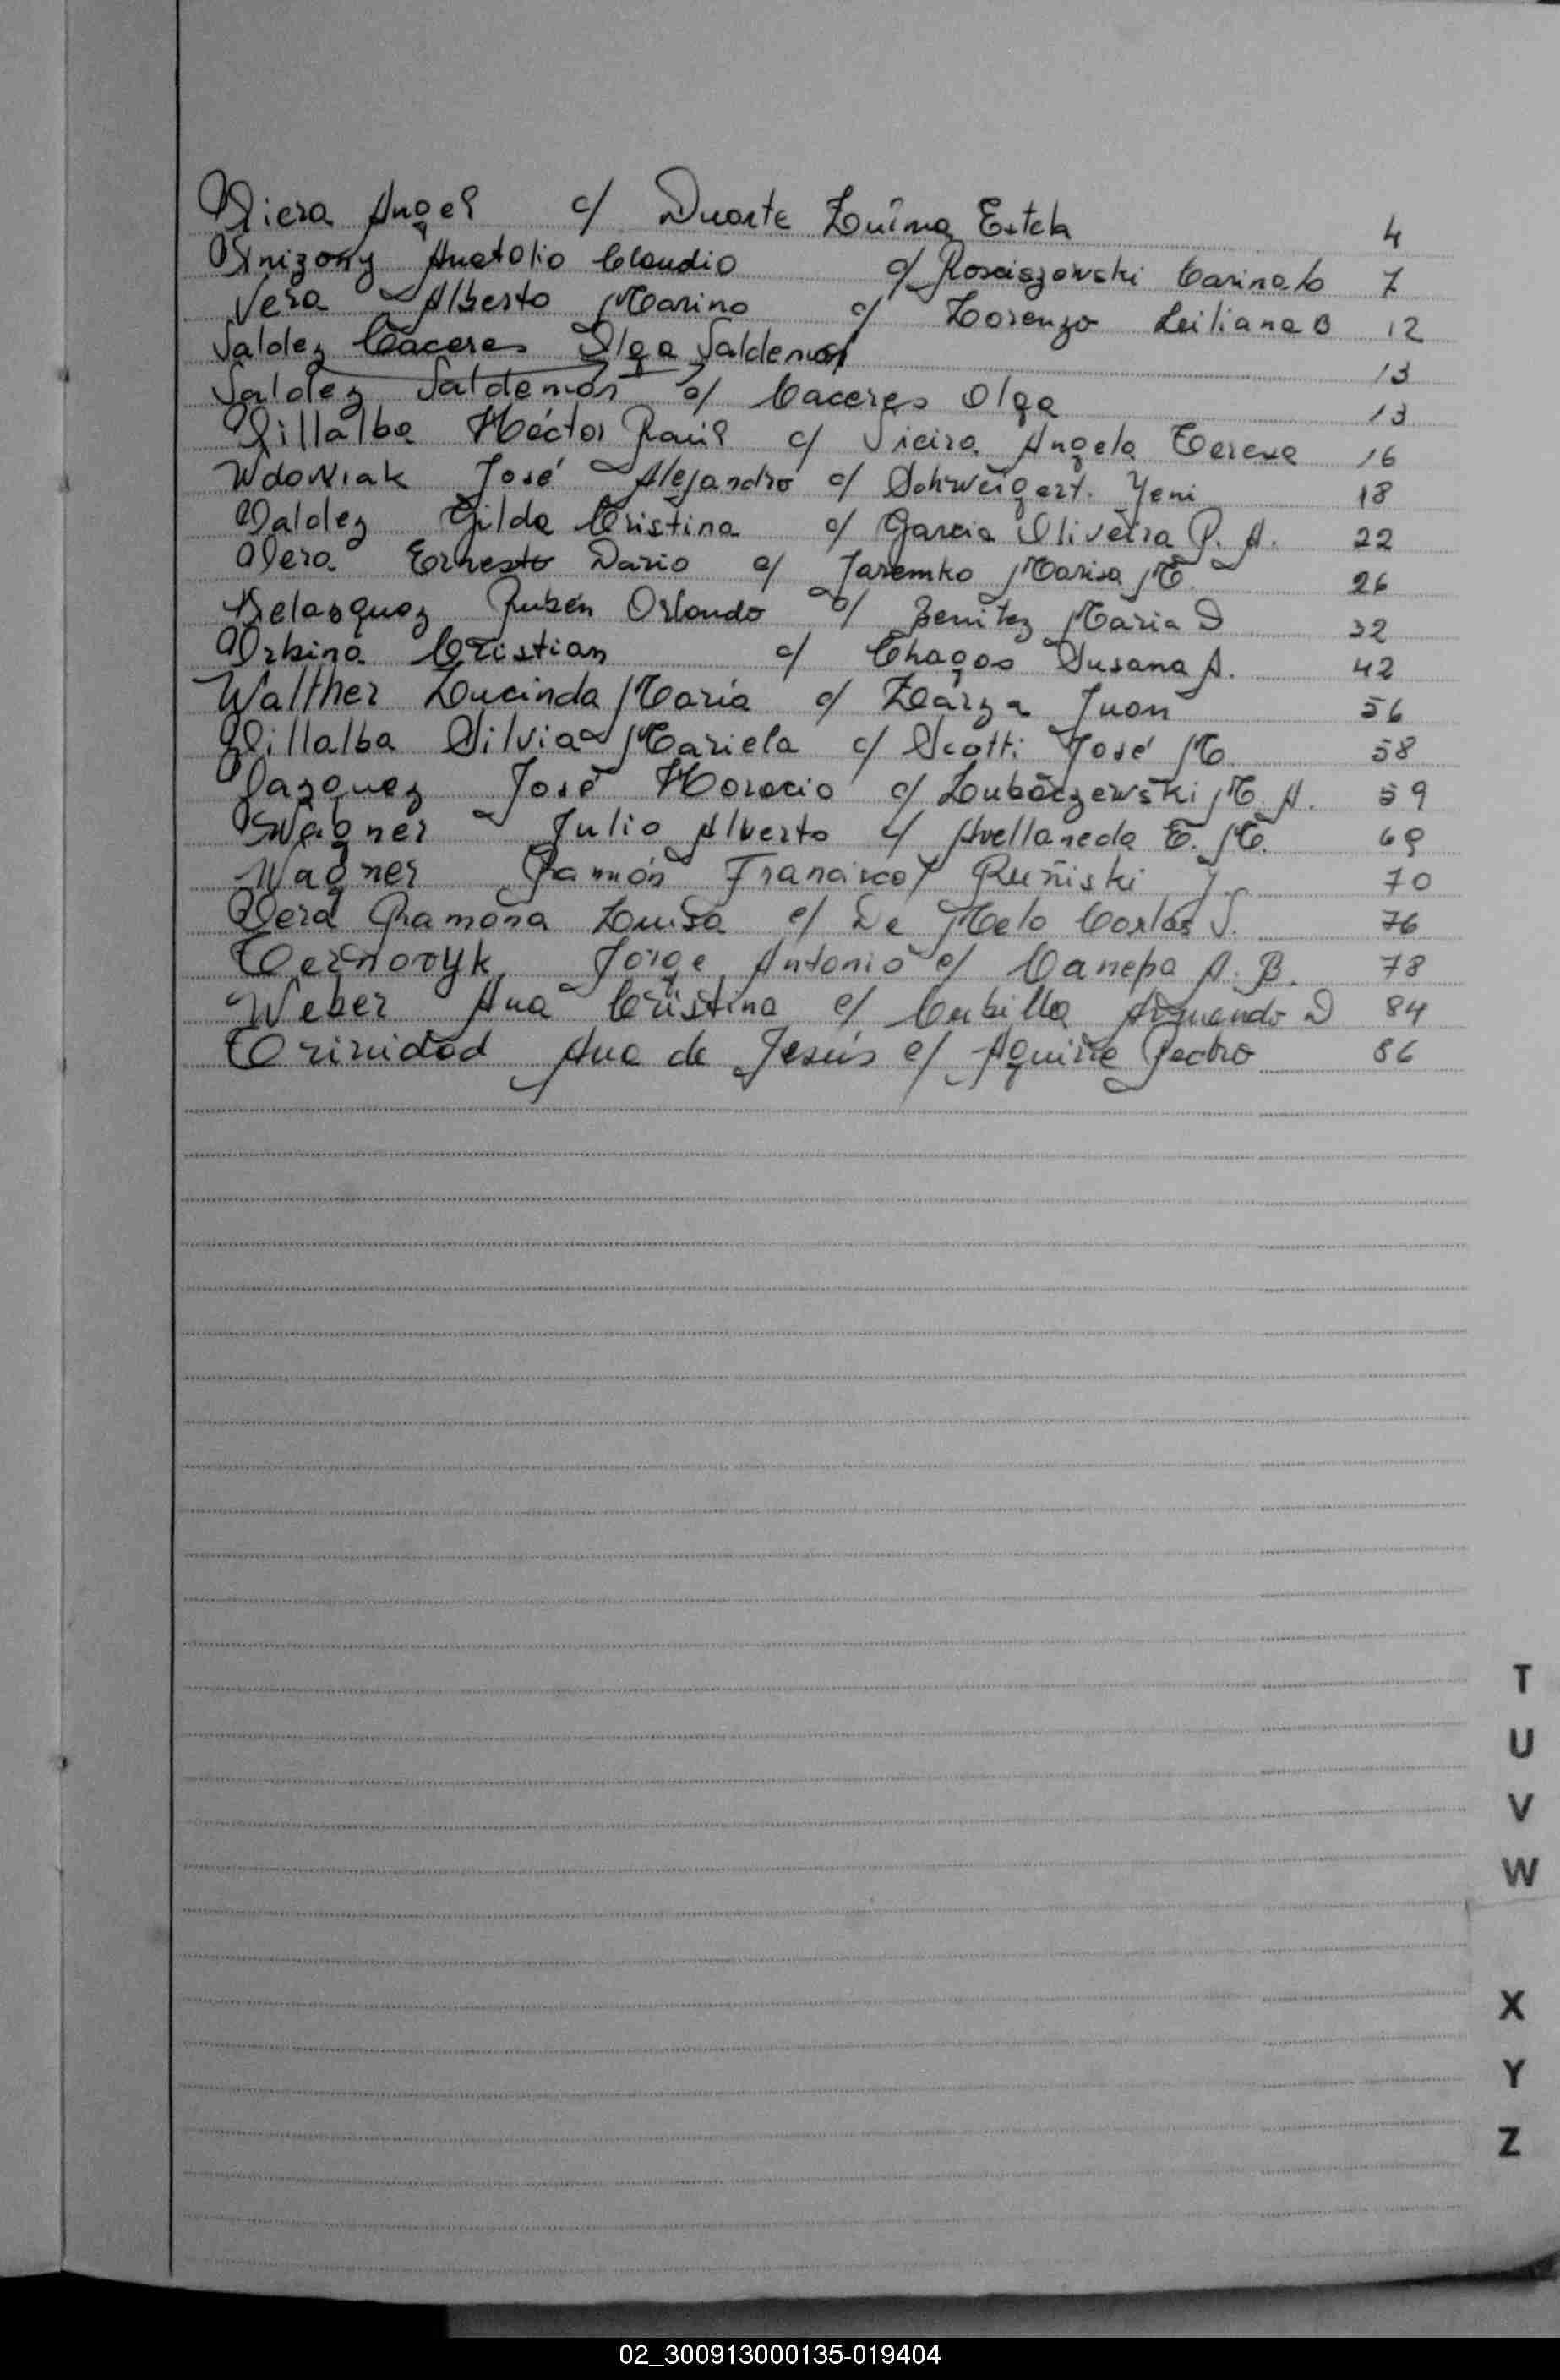 Viera Angel c/ Duarte Zulma Estela 4
Anatolio Claudio c/ Rosciszewski Carina 7
Vera Alberto Marino c/ Lorenzo Liliana B 12
Valdez Caceres Olga Valdemos 13
Valdez Valdemos c/ Caceres Olga 13
Villalba Héctor Raúl c/ Vieira Angela Teresa 16
Wdowiak José Alejandro c/ Schweigert Yeni 18
Valdez Gilda Cristina c/ Garcia Oliveira P. A. 22
Vera Ernesto Dario c/ Jaremko Marisa M. 26
Velasquez Rubén Orlando c/ Benitez Maria D 32
Urbina Cristian c/ Chagas Susana A. 42
Walther Lucinda Maria c/ Zarza Juan 56
Villalba Silvia Mariela c/ Scotti José M. 58
Vazquez José Horacio c/ M. A. 59
Wagner Julio Alberto c/ Avellaneda E. M. 69
Wagner Ramón Francisco c/ J. 70
Vera Ramona Luisa c/ De Melo Carlos J. 76
Jorge Antonio c/ Canepa A. B. 78
Weber Ana Cristina c/ Cubilla Armando D 84
Trinidad Ana de Jesús c/ Aguirre Pedro 86
T
U
V
W
X
Y
Z
02_300913000135-019404